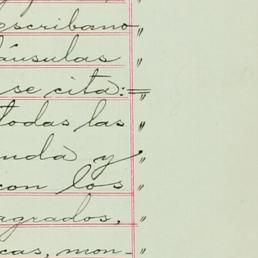 escribano
láusulas
se cita:=
todas las
nda y
con los
agrados,
cas, mon-